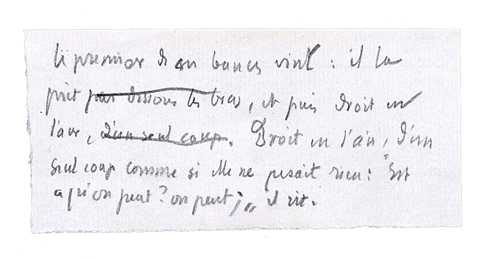 le premier de ces bancs vint : il la
prit par dessous les bras, et puis droit en
l'air, d'un seul coup. Droit en l'air, d'un
seul coup comme si elle ne pesait rien : "Est
qu'on peut ? on peut", il rit.